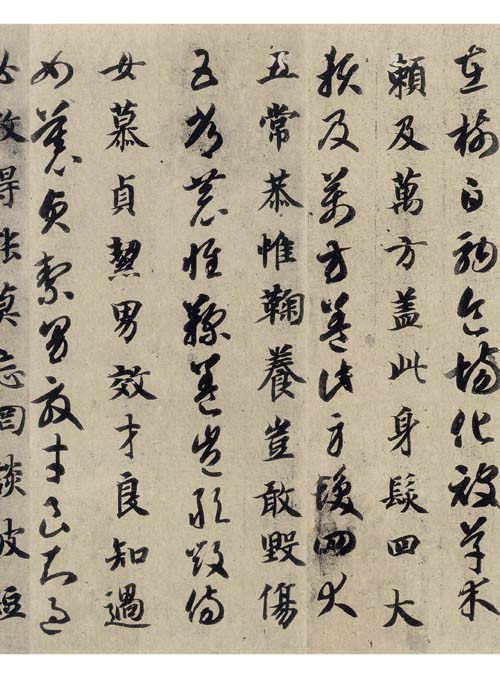 在樹白駒食場化被草木
賴及萬方盖此身髮四大
賴及萬方盖此身髮四大
五常恭惟鞠養豈敢毀傷
五常恭惟鞠養豈敢毀傷
女慕貞絜男效才良知過
女慕貞絜男效才良知過
必改得能莫忘罔談彼短